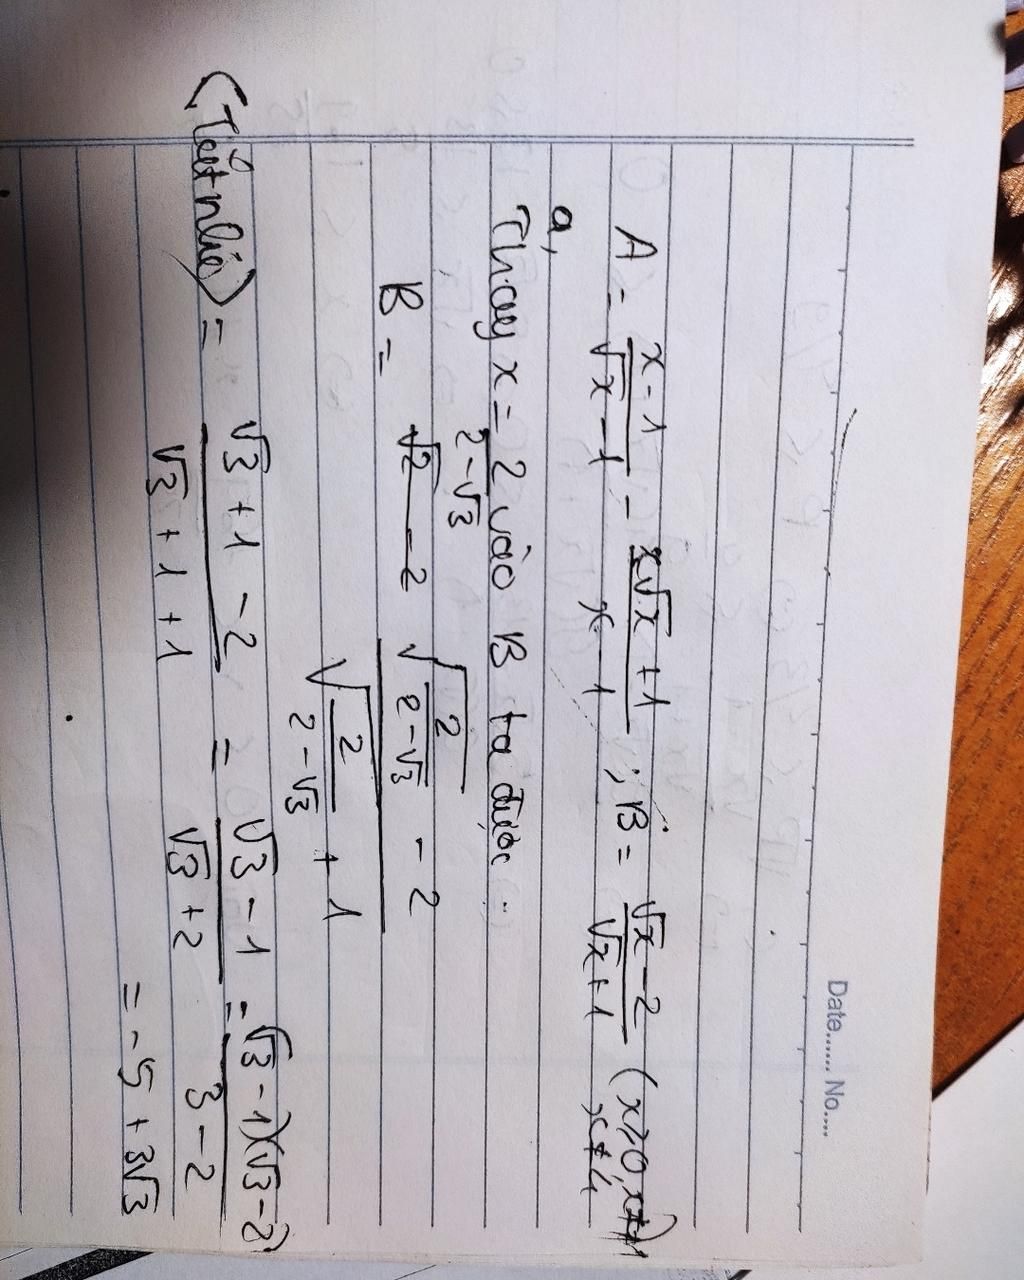 Date...... No....
A = x - 1 / √x - 1 - x√x + 1 / x - 1 ; B = √x - 2 / √x + 1 (x ≥ 0, x ≠ 1
x ≠ 4
a,
Thay x = 2 / 2 - √3 vào B ta được :
B = √2 - 2 √(2 / 2 - √3) - 2 / √(2 / 2 - √3) + 1
= √3 + 1 - 2 / √3 + 1 + 1 = √3 - 1 / √3 + 2 = √3 - 1)(√3 - 2) / 3 - 2
= -5 + 3√3